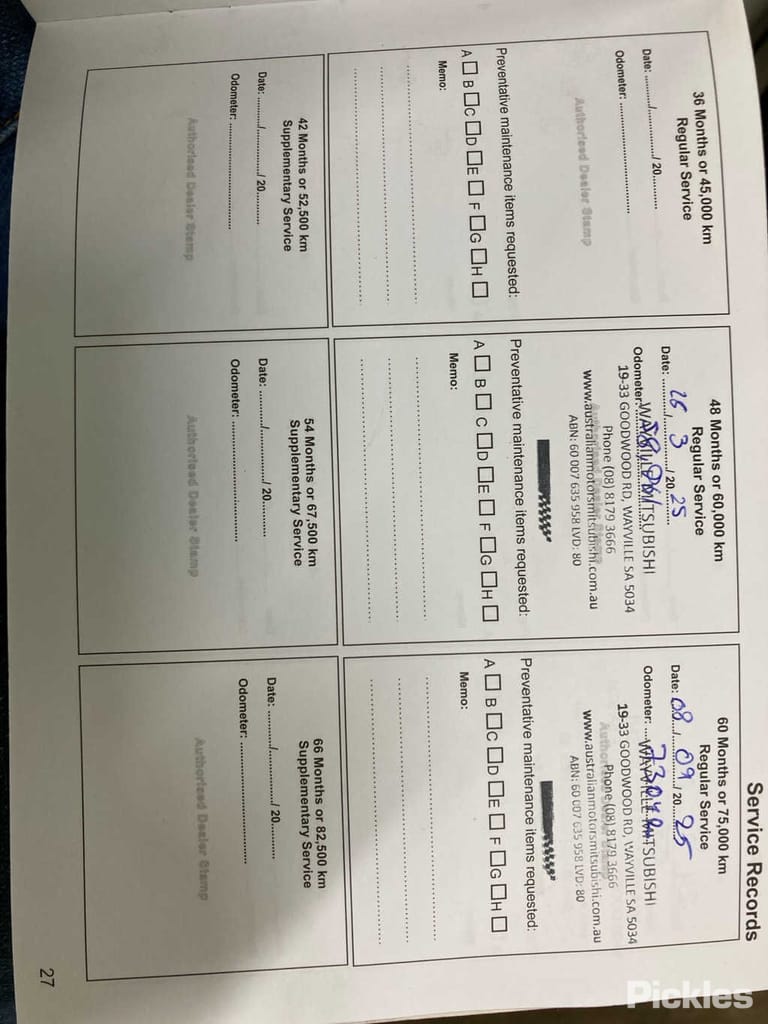 Service Records
36 Months or 45,000 km
Regular Service
Date: ........./............./ 20..........
Odometer: ................................
Authorised Dealer Stamp
Preventative maintenance items requested:
A □ B □ C □ D □ E □ F □ G □ H □
Memo:
48 Months or 60,000 km
Regular Service
Date: 26/3/2025
Odometer:
WAYVILLE MITSUBISHI
19-33 GOODWOOD RD, WAYVILLE SA 5034
Phone (08) 8179 3666
Authorised Dealer Stamp
www.australianmotorsmitsubishi.com.au
ABN: 60 007 635 958 LVD: 80
Preventative maintenance items requested:
A □ B □ C □ D □ E □ F □ G □ H □
Memo:
60 Months or 75,000 km
Regular Service
Date: 08/09/2025
Odometer:
WAYVILLE MITSUBISHI
19-33 GOODWOOD RD, WAYVILLE SA 5034
Phone (08) 8179 3666
Authorised Dealer Stamp
www.australianmotorsmitsubishi.com.au
ABN: 60 007 635 958 LVD: 80
Preventative maintenance items requested:
A □ B □ C □ D □ E □ F □ G □ H □
Memo:
42 Months or 52,500 km
Supplementary Service
Date: ........./............./ 20..........
Odometer: ................................
Authorised Dealer Stamp
54 Months or 67,500 km
Supplementary Service
Date: ........./............./ 20..........
Odometer: ................................
Authorised Dealer Stamp
66 Months or 82,500 km
Supplementary Service
Date: ........./............./ 20..........
Odometer: ................................
Authorised Dealer Stamp
27
Pickles